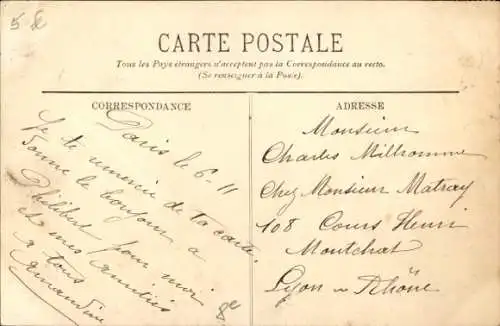 5 €
CARTE POSTALE
Tous les Pays étrangers n'acceptent pas la Correspondance au recto.
(Se renseigner à la Poste).
CORRESPONDANCE
Paris le 6-11
Je te remercie de ta carte.
Donne le bonjour à
Philibert pour moi
et mes amitiés
a tous
Amandine
8e
ADRESSE
Monsieur
Charles Milhomme
Chez Monsieur Matray
108 Cours Henri
Montchat
Lyon Rhône